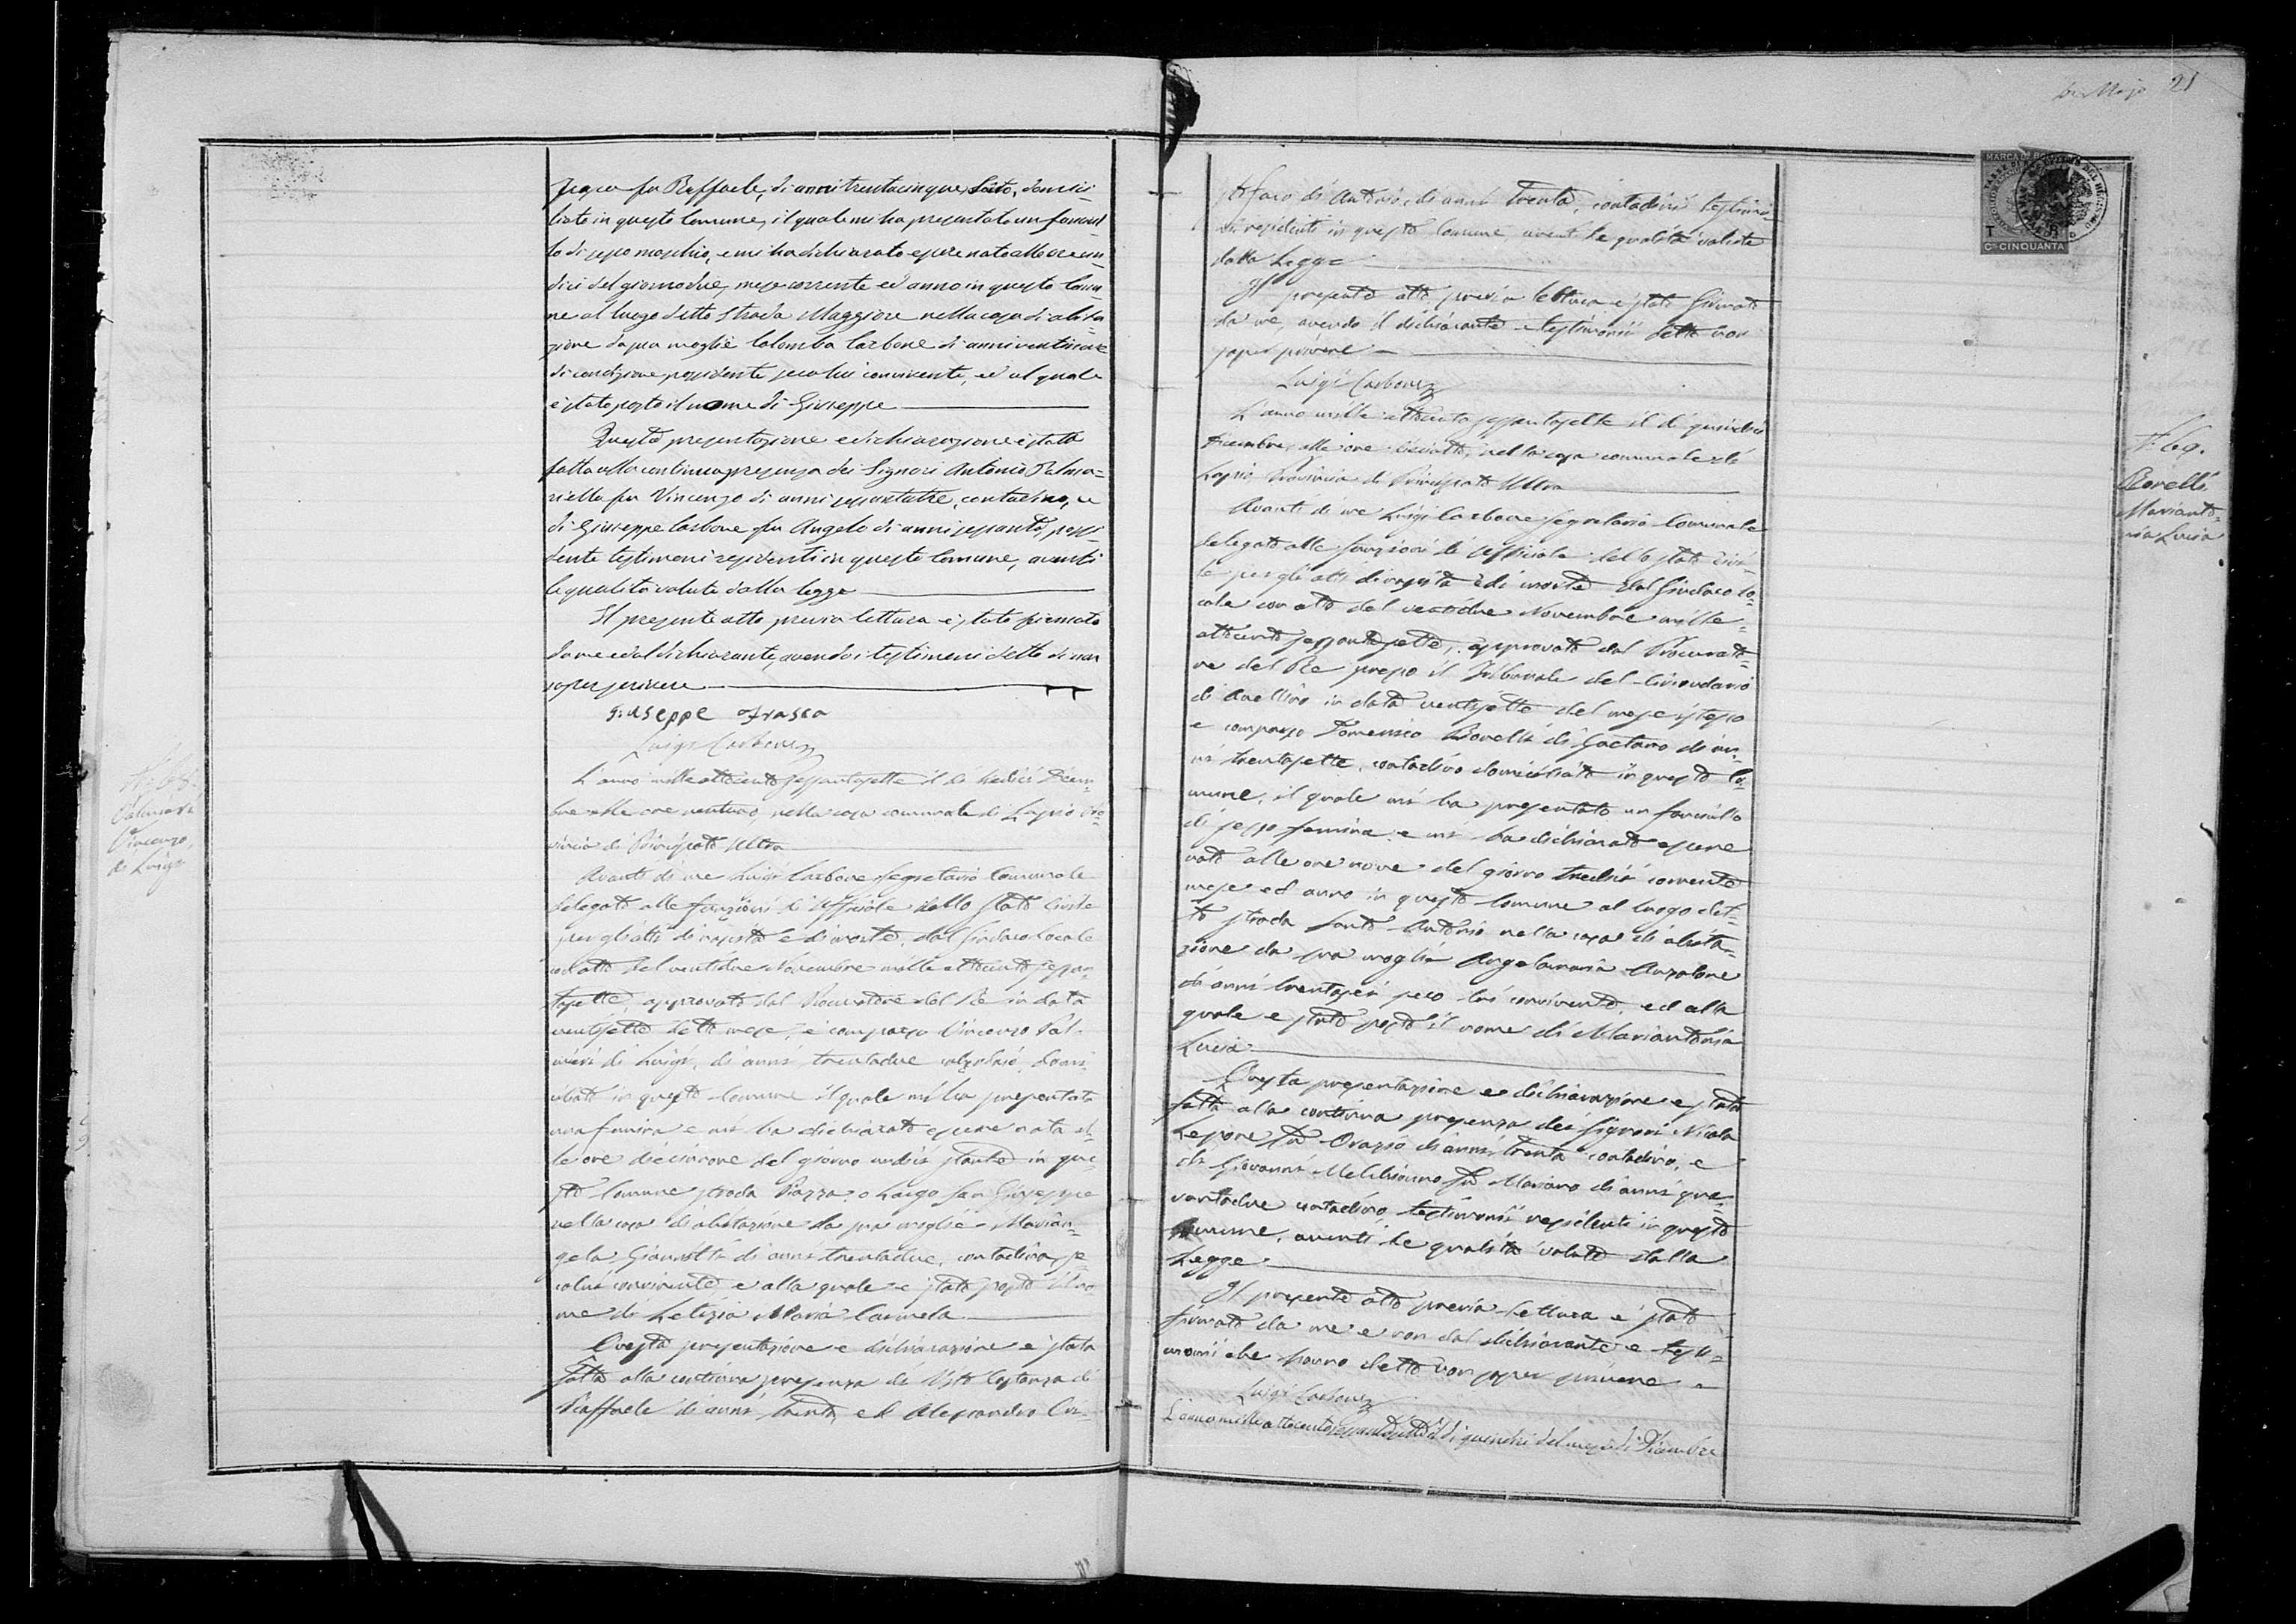 fu Raffaele, di anni trentacinque, Sarto, domici-
liato in questo Comune, il quale mi ha presentato un fanciul-
lo di sesso maschio, e mi ha dichiarato essere nato alle ore un-
dici del giorno due, mese corrente ed anno in questo Comu-
ne al luogo detto Strada Maggiore nella casa di abita-
zione da sua moglie Colomba Carbone di anni ventinove
di condizione possidente seco lui convivente, ed al quale
è stato posto il nome di Giuseppe
Questa presentazione e dichiarazione è stata
fatta alla continua presenza dei Signori Antonio Palma-
riello fu Vincenzo di anni sessantatre, contadino, e
di Giuseppe Carbone fu Angelo di anni sessanta, possi-
dente testimoni residenti in questo Comune, aventi
le qualità volute dalla legge
Il presente atto previa lettura è stato firmato
da me e dal dichiarante, avendo i testimoni detto di non
saper scrivere
Giuseppe
Luigi Carbone
N. 68.
Vincenzo,
di Luigi
L'anno mille ottocento sessantasette il dì tredici Dicem-
bre alle ore ventuno, nella casa comunale di Lapio Pro-
vincia di Principato Ultra
Avanti di me Luigi Carbone Segretario Comunale
delegato alle funzioni di Uffiziale dello Stato Civile
per gli atti di nascita e di morte, dal Sindaco locale
con atto del ventidue Novembre mille ottocento sessan-
tasette, approvato dal Procuratore del Re in data
ventisette detto mese, è comparso Vincenzo Pal-
mieri di Luigi, di anni trentadue calzolaio, domi-
ciliato in questo Comune il quale mi ha presentata
una femina e mi ha dichiarato essere nata al-
le ore diecinnove del giorno undici stante in que-
sto Comune strada Piazza o Largo San Giuseppe
nella casa di abitazione da sua moglie Marian-
gela di anni trentadue, contadina, se-
colui convivente e alla quale è stato posto il no-
me di Letizia Maria Carmela
Questa presentazione e dichiarazione è stata
fatta alla continua presenza di Vito Costanza di
Raffaele di anni trenta, e di Alessandro Cri-
21
MARCA DA BOLLO
Ct. CINQUANTA
stofaro di Antonio, di anni trenta, contadini testimo-
ni residenti in questo Comune, aventi le qualità volute
dalla Legge
Il presente atto previa lettura è stato firmato
da me, avendo il dichiarante e testimonii detto non
saper scrivere
Luigi Carbone
N. 69.
Borelli
Marianto-
nia Lucia
L'anno mille ottocento sessantasette il dì quindici
Dicembre, alle ore dieciotto, nella casa comunale di
Lapio, Provincia di Principato Ultra
Avanti di me Luigi Carbone Segretario Comunale
delegato alle funzioni di Uffiziale dello stato civi-
le per gli atti di nascita e di morte dal Sindaco lo-
cale con atto del ventidue Novembre mille-
ottocento sessantasette, approvato dal Procurato-
re del Re presso il Tribunale del Circondario
di Avellino in data ventisette del mese istesso
è comparso Domenico Borelli di Gaetano di an-
ni trentasette, contadino domiciliato in questo Co-
mune, il quale mi ha presentato un fanciullo
di sesso femina e mi ha dichiarato essere
nato alle ore nove del giorno tredici corrente
mese ed anno in questo Comune al luogo det-
to strada Santo Antonio nella casa di abita-
zione da sua moglie Angelamaria Anzalone
di anni trentasei seco lui convivente, ed alla
quale è stato posto il nome di Mariantonia
Lucia
Questa presentazione e dichiarazione è stata
fatta alla continua presenza dei Signori Nicola
Lepore fu Orazio di anni trenta contadino, e
di Giovanni Melchionno fu Mariano di anni qua-
rantadue contadino testimonii residenti in questo
Comune, aventi le qualità volute dalla
Legge
Il presente atto previa lettura è stato
firmato da me e non dal dichiarante e testi-
monii che hanno detto non saper scrivere
Luigi Carbone
L'anno mille ottocento sessantasette il dì quindici del mese di Dicembre